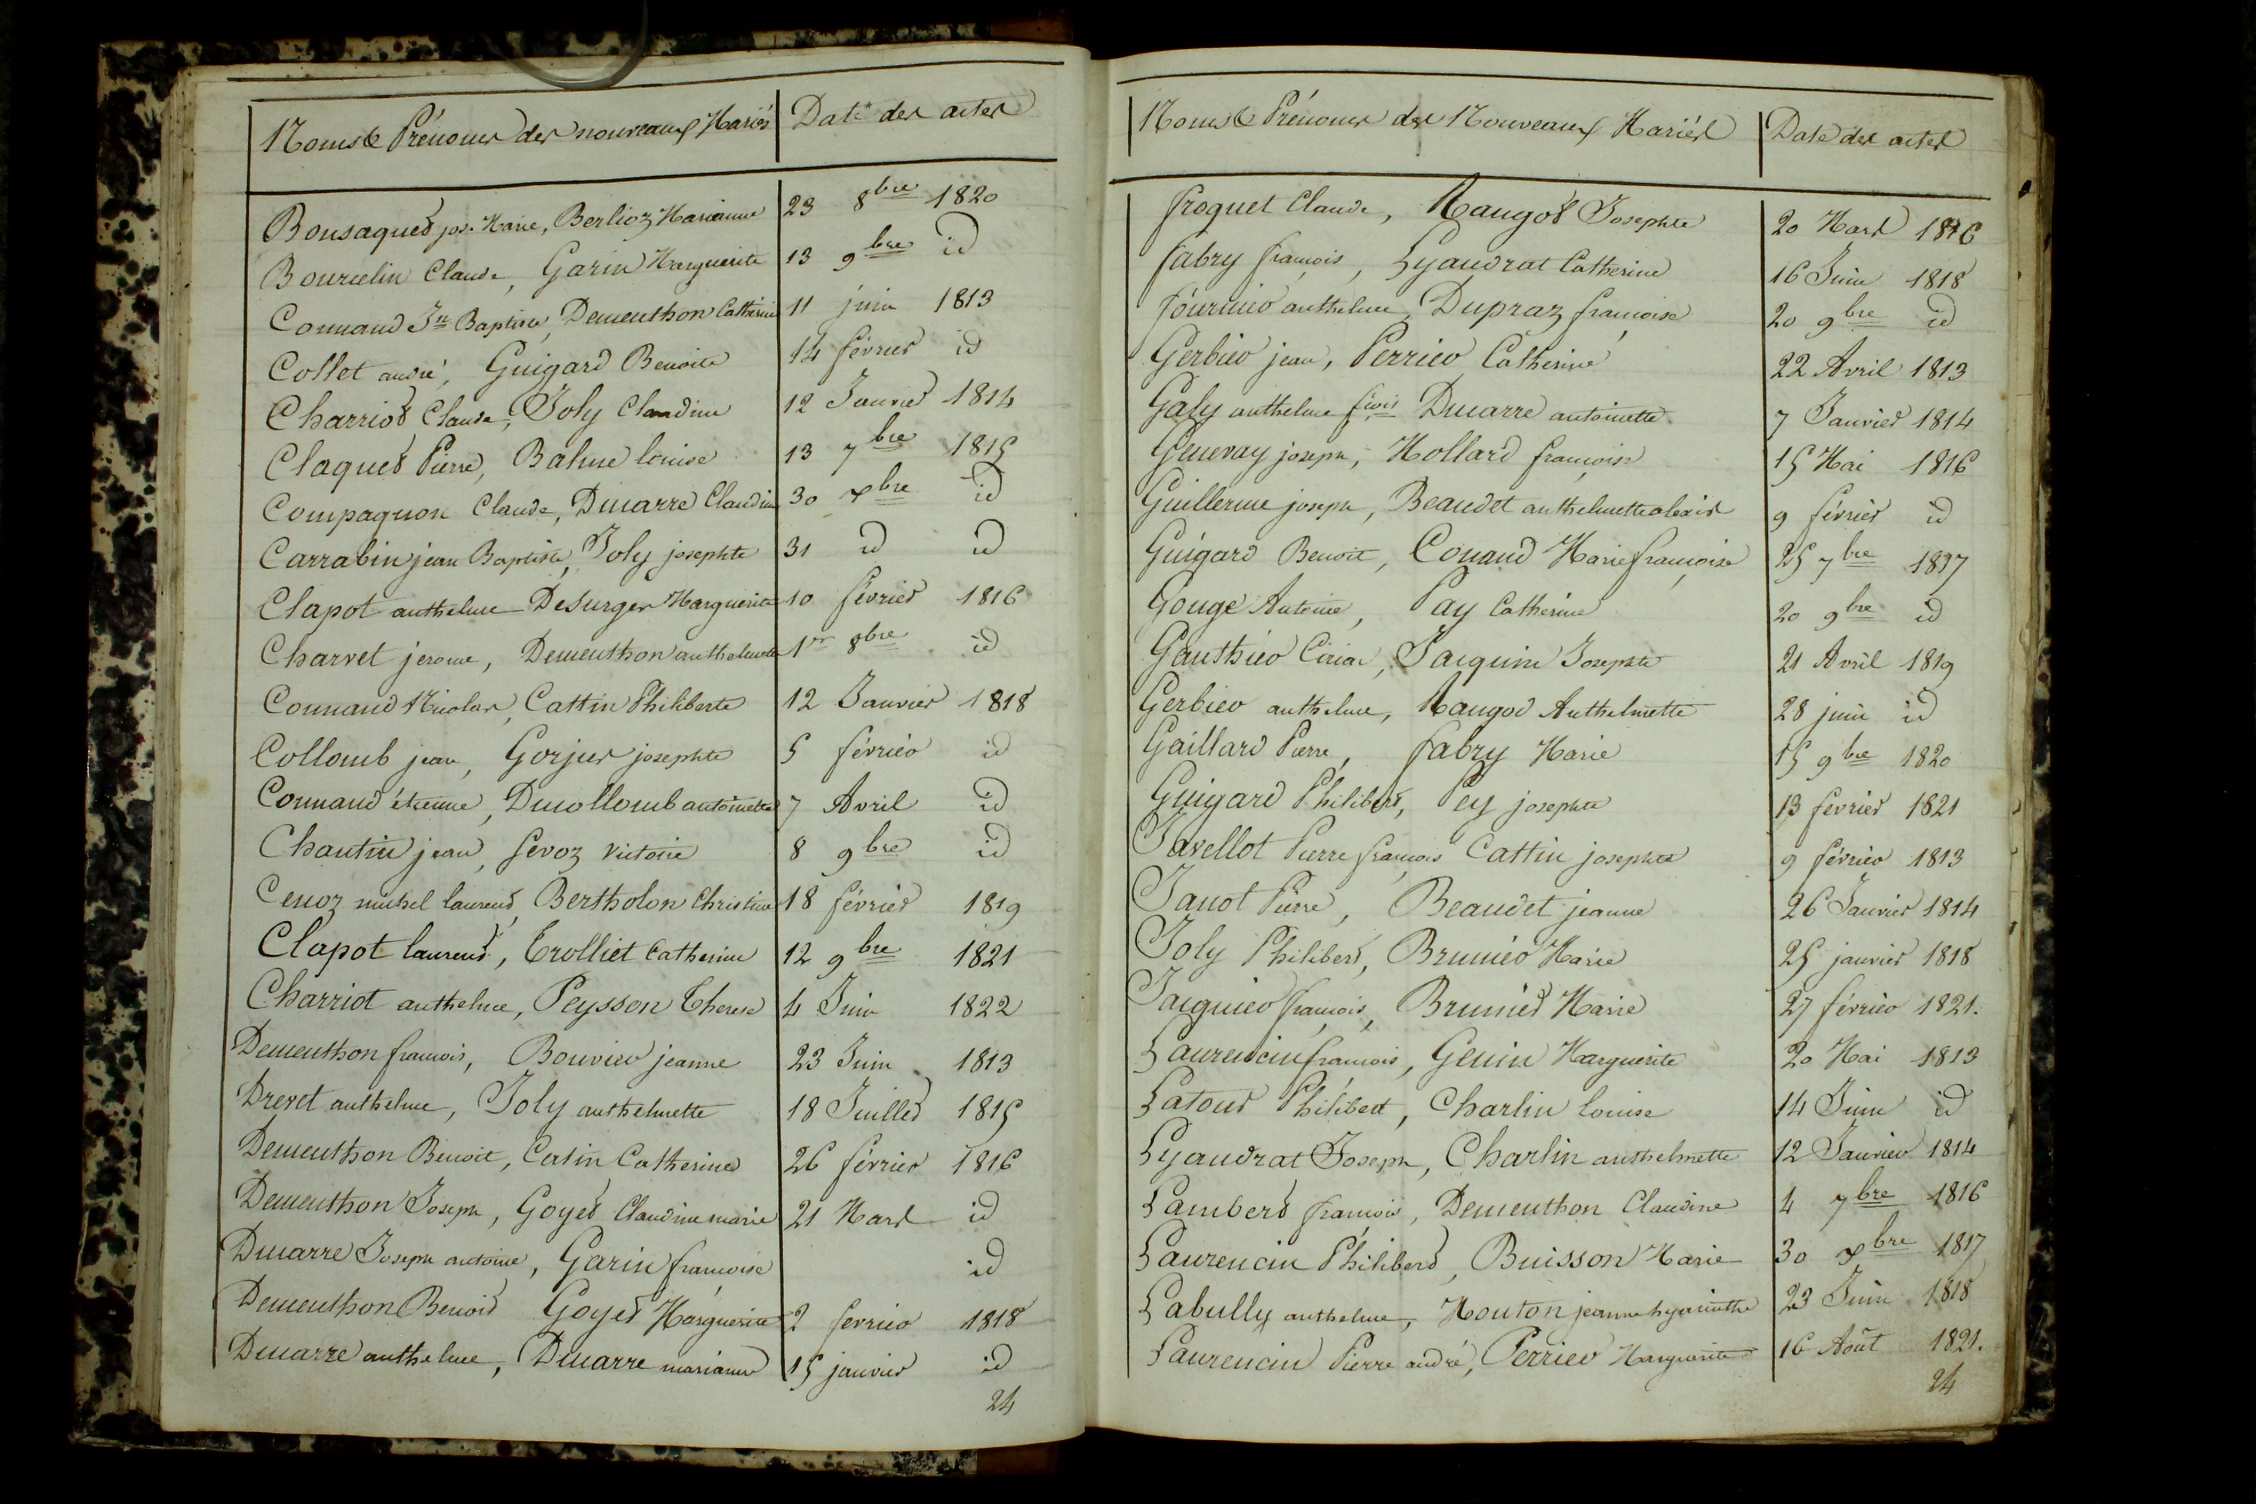 Noms & Prénoms des nouveaux Mariés Date des actes
Bonsaqued jos. Marie, Berlioz Marianne 23 8bre 1820
Bourcelin Claude, Garin Marguerite 13 9bre id
Connand Jn Baptiste, Dementhon Catherine 11 juin 1813
Collet andré, Guigard Benoite 14 février id
Charriot Claude, Joly Claudine 12 Janvier 1814
Claqued Pierre, Balme louise 13 7bre 1815
Compagnon Claude, Ducarre Claudine 30 xbre id
Carrabin jean Baptiste, Joly josephte 31 id id
Clapot anthelme Desurger Marguerite 10 février 1816
Charvet jerome, Dementhon anthelmette 1er 8bre id
Connand Nicolas, Cattin Philiberte 12 Janvier 1818
Collomb jean, Gorjus josephte 5 février id
Connand étienne, Ducollomb antoinette 7 Avril id
Chantin jean, fevoz victoire 8 9bre id
Cenoz michel laurend, Bertholon Christine 18 février 1819
Clapot laurend, Trolliet Catherine 12 9bre 1821
Charriot anthelme, Peysson Therese 4 Juin 1822
Dementhon francois, Bouvier jeanne 23 Juin 1813
Drevet anthelme, Joly anthelmette 18 Juillet 1815
Dementhon Benoit, Catin Catherine 26 février 1816
Dementhon Joseph, Goyed Claudine marie 21 Mars id
Ducarre Joseph antoine, Garin francoise id
Dementhon Benoid Goyed Marguerite 2 fevrier 1818
Ducarre anthelme, Ducarre marianne 15 janvier id
24
Noms & Prénoms des Nouveaux Mariés Date des actes
froquet Claude, Maugod Josephte 20 Mars 1816
fabry françois, Lyaudrat Catherine 16 Juin 1818
fournier anthelme, Dupraz françoise 20 9bre id
Gerbier jean, Perrier Catherine 22 Avril 1813
Galy anthelme fçois Ducarre antoinette 7 Janvier 1814
Genevay joseph, Mollard françoise 15 Mai 1816
Guillerme joseph, Beaudet anthelmette alexis 9 février id
Guigard Benoit, Conand Marie françoise 25 7bre 1817
Gouge Antoine, Pay Catherine 20 9bre id
Gauthier Ciriac, Jacquin Josephte 21 Avril 1819
Gerbier anthelme, Maugod Anthelmette 28 juin id
Gaillard Pierre, fabry Marie 15 9bre 1820
Guigard Philiberd, Pey josephte 13 février 1821
Javellot Pierre françois Cattin josephte 9 février 1813
Janot Pierre, Beaudet jeanne 26 Janvier 1814
Joly Philiberd, Brunier Marie 25 janvier 1818
Jacquier françois, Brunied Marie 27 février 1821.
Laurencin francois, Genin Marguerite 20 Mai 1813
Latour Philibert, Charlin louise 14 Juin id
Lyaudrat Joseph, Charlin anthelmette 12 Janvier 1814
Lamberd francois, Dementhon Claudine 4 7bre 1816
Laurencin Philiberd, Buisson Marie 30 xbre 1817
Labully anthelme, Mouton jeanne hyacinthe 23 Juin 1818
Laurencin Pierre andré, Perrier Marguerite 16 Août 1821.
24